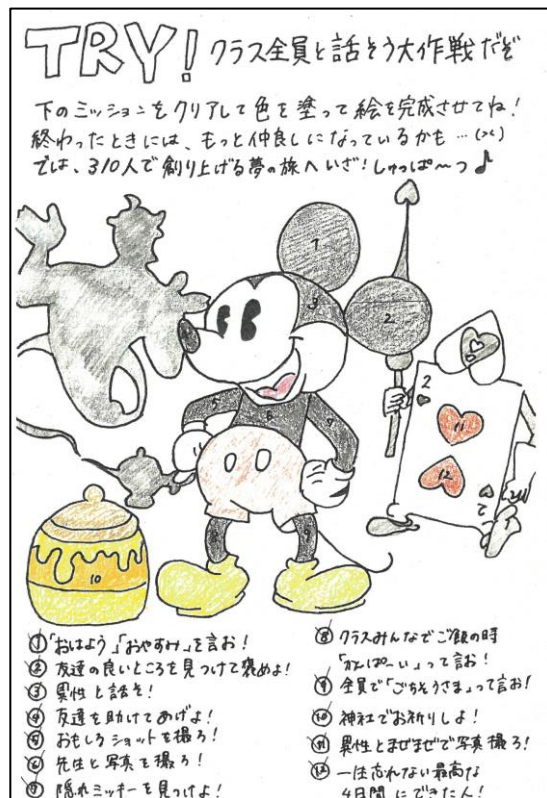 TRY! クラス全員と話そう大作戦だぞ
下のミッションをクリアして色を塗って絵を完成させてね!
終わったときには、もっと仲良しになっているかも…(><)
では、310人で創り上げる夢の旅へいざ!しゅっぱ〜つ♪
1
2
3
5
6
7
8
9
10
2
11
12
2
①「おはよう」「おやすみ」を言お!
② 友達の良いところを見つけて褒めよ!
③ 異性と話そ!
④ 友達を助けてあげよ!
⑤ おもしろショットを撮ろ!
⑥ 先生と写真を撮ろ!
⑦ 隠れミッキーを見つけよ!
⑧ クラスみんなでご飯の時
「かんぱーい」って言お!
⑨ 全員で「ごちそうさま」って言お!
⑩ 神社でお祈りしよ!
⑪ 異性とまぜまぜで写真撮ろ!
⑫ 一生忘れない最高な
4日間にできたん!